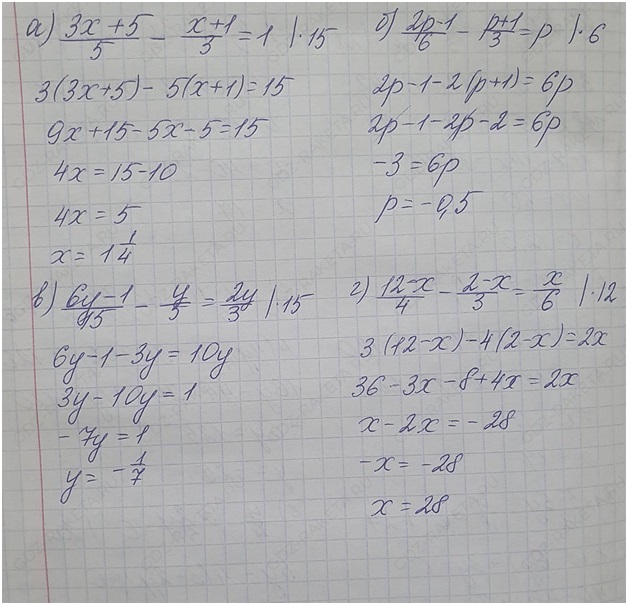 а) (3x+5)/5 - (x+1)/3 = 1 |·15
3(3x+5) - 5(x+1) = 15
9x+15-5x-5=15
4x = 15-10
4x = 5
x = 1 1/4
б) (2p-1)/6 - (p+1)/3 = p |·6
2p-1-2(p+1) = 6p
2p-1-2p-2 = 6p
-3 = 6p
p = -0,5
в) (6y-1)/15 - y/5 = 2y/3 |·15
6y-1-3y = 10y
3y-10y = 1
-7y = 1
y = -1/7
г) (12-x)/4 - (2-x)/3 = x/6 |·12
3(12-x)-4(2-x)=2x
36-3x-8+4x=2x
x-2x = -28
-x = -28
x = 28